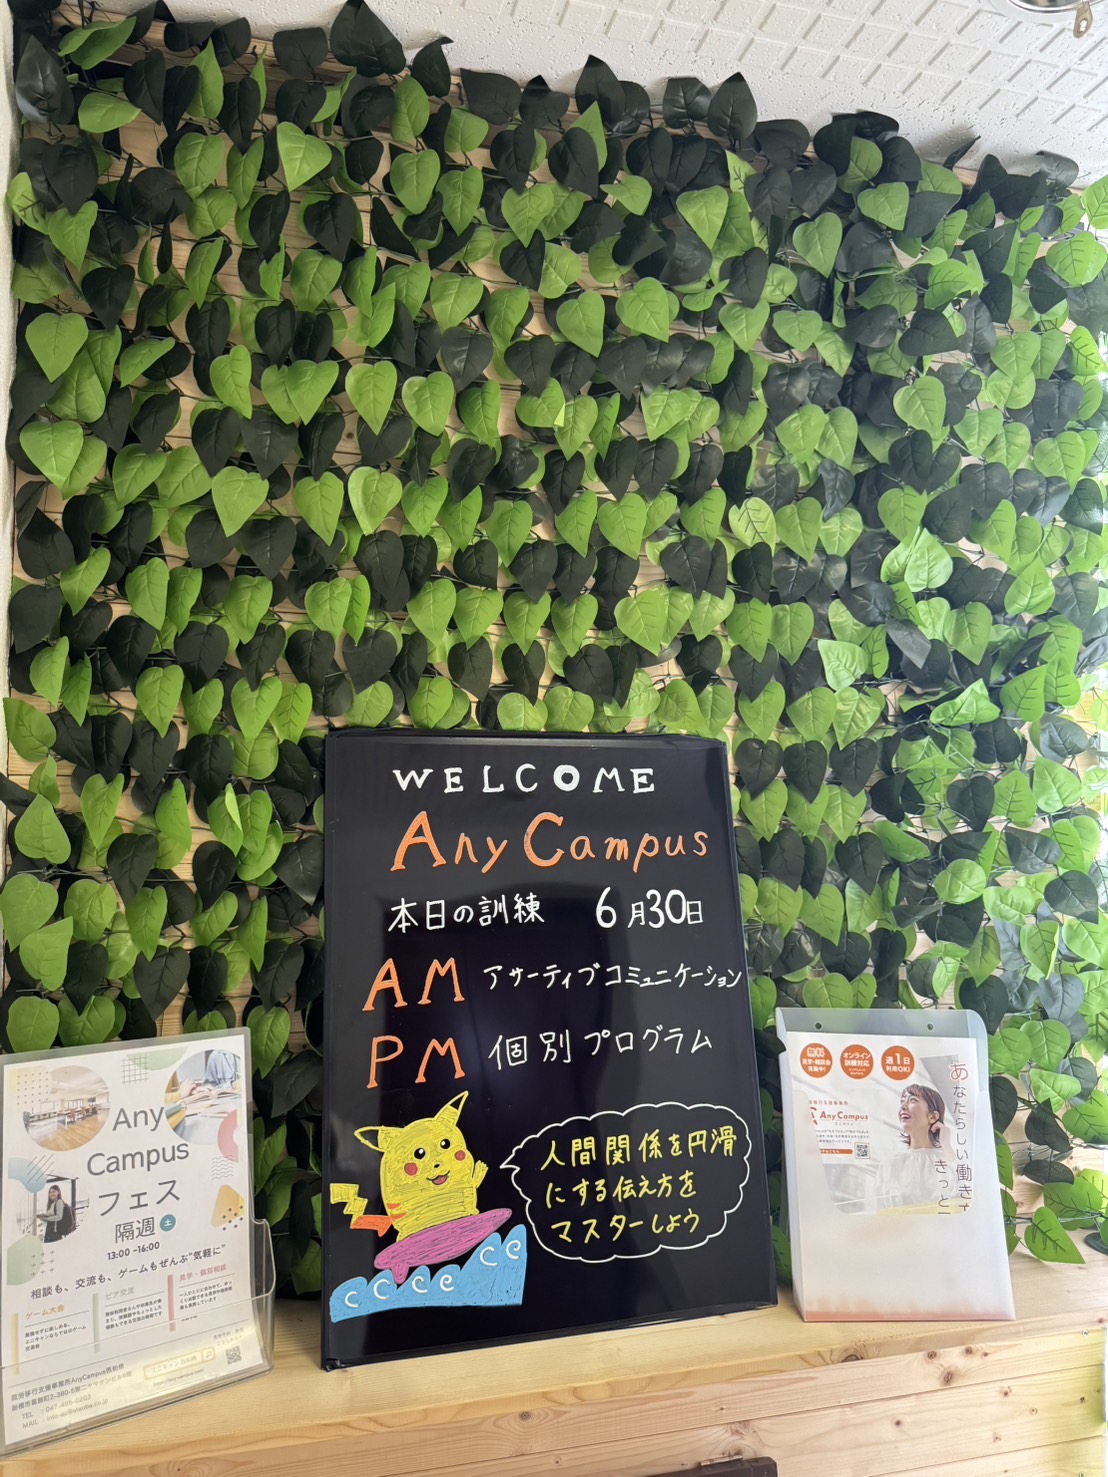 WELCOME
Any Campus
本日の訓練 6月30日
AM アサーティブコミュニケーション
PM 個別プログラム
人間関係を円滑
にする伝え方を
マスターしよう
Any
Campus
フェス
隔週 土
13:00 -16:00
相談も、交流も、ゲームもぜんぶ"気軽に"
ゲーム大会
ピア交流
見学・個別相談
就労移行支援事業所AnyCampus西船橋
TEL : 047-495-0203
MAIL :
無料
見学・相談会
実施中!
オンライン
訓練対応
週1日
利用OK!
Any Campus
あなたらしい働き
きっと